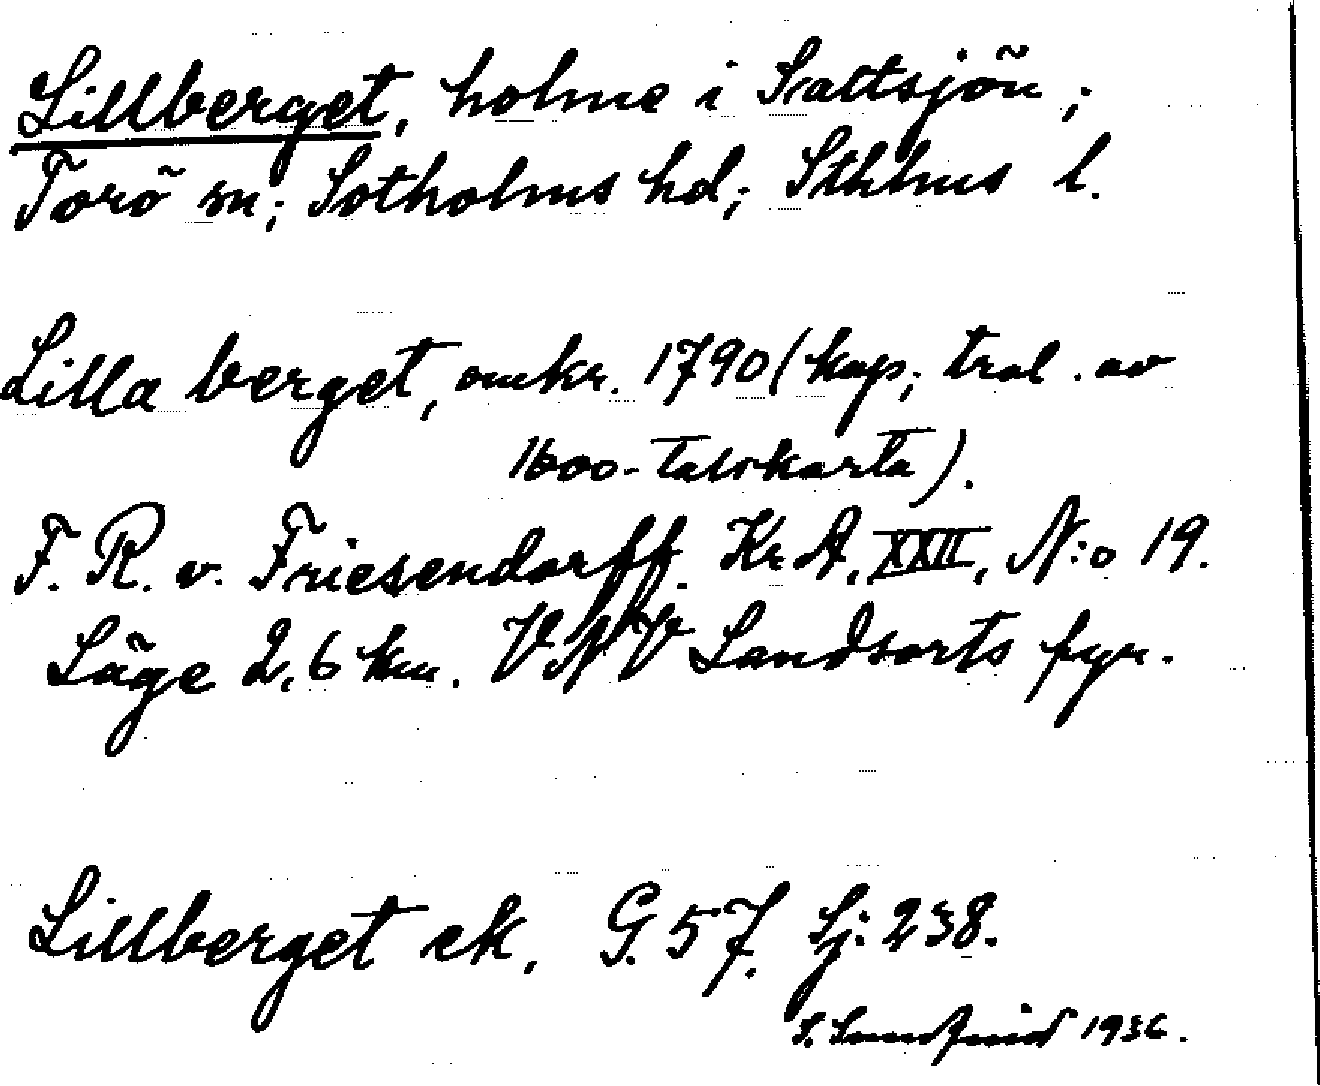 Lillberget, holme i Saltsjön;
Torö sn; Sotholms hd; Sthlms l.
Lilla berget, omkr. 1790 (kop; trol. av
1600-talskarta).
F. R. v. Friesendorff. Kr A, XXII, N:o 19.
Läge 2,6 km. VNV Landsorts fyr.
Lillberget ek. G. 57. Sj: 238.
S. 1936.